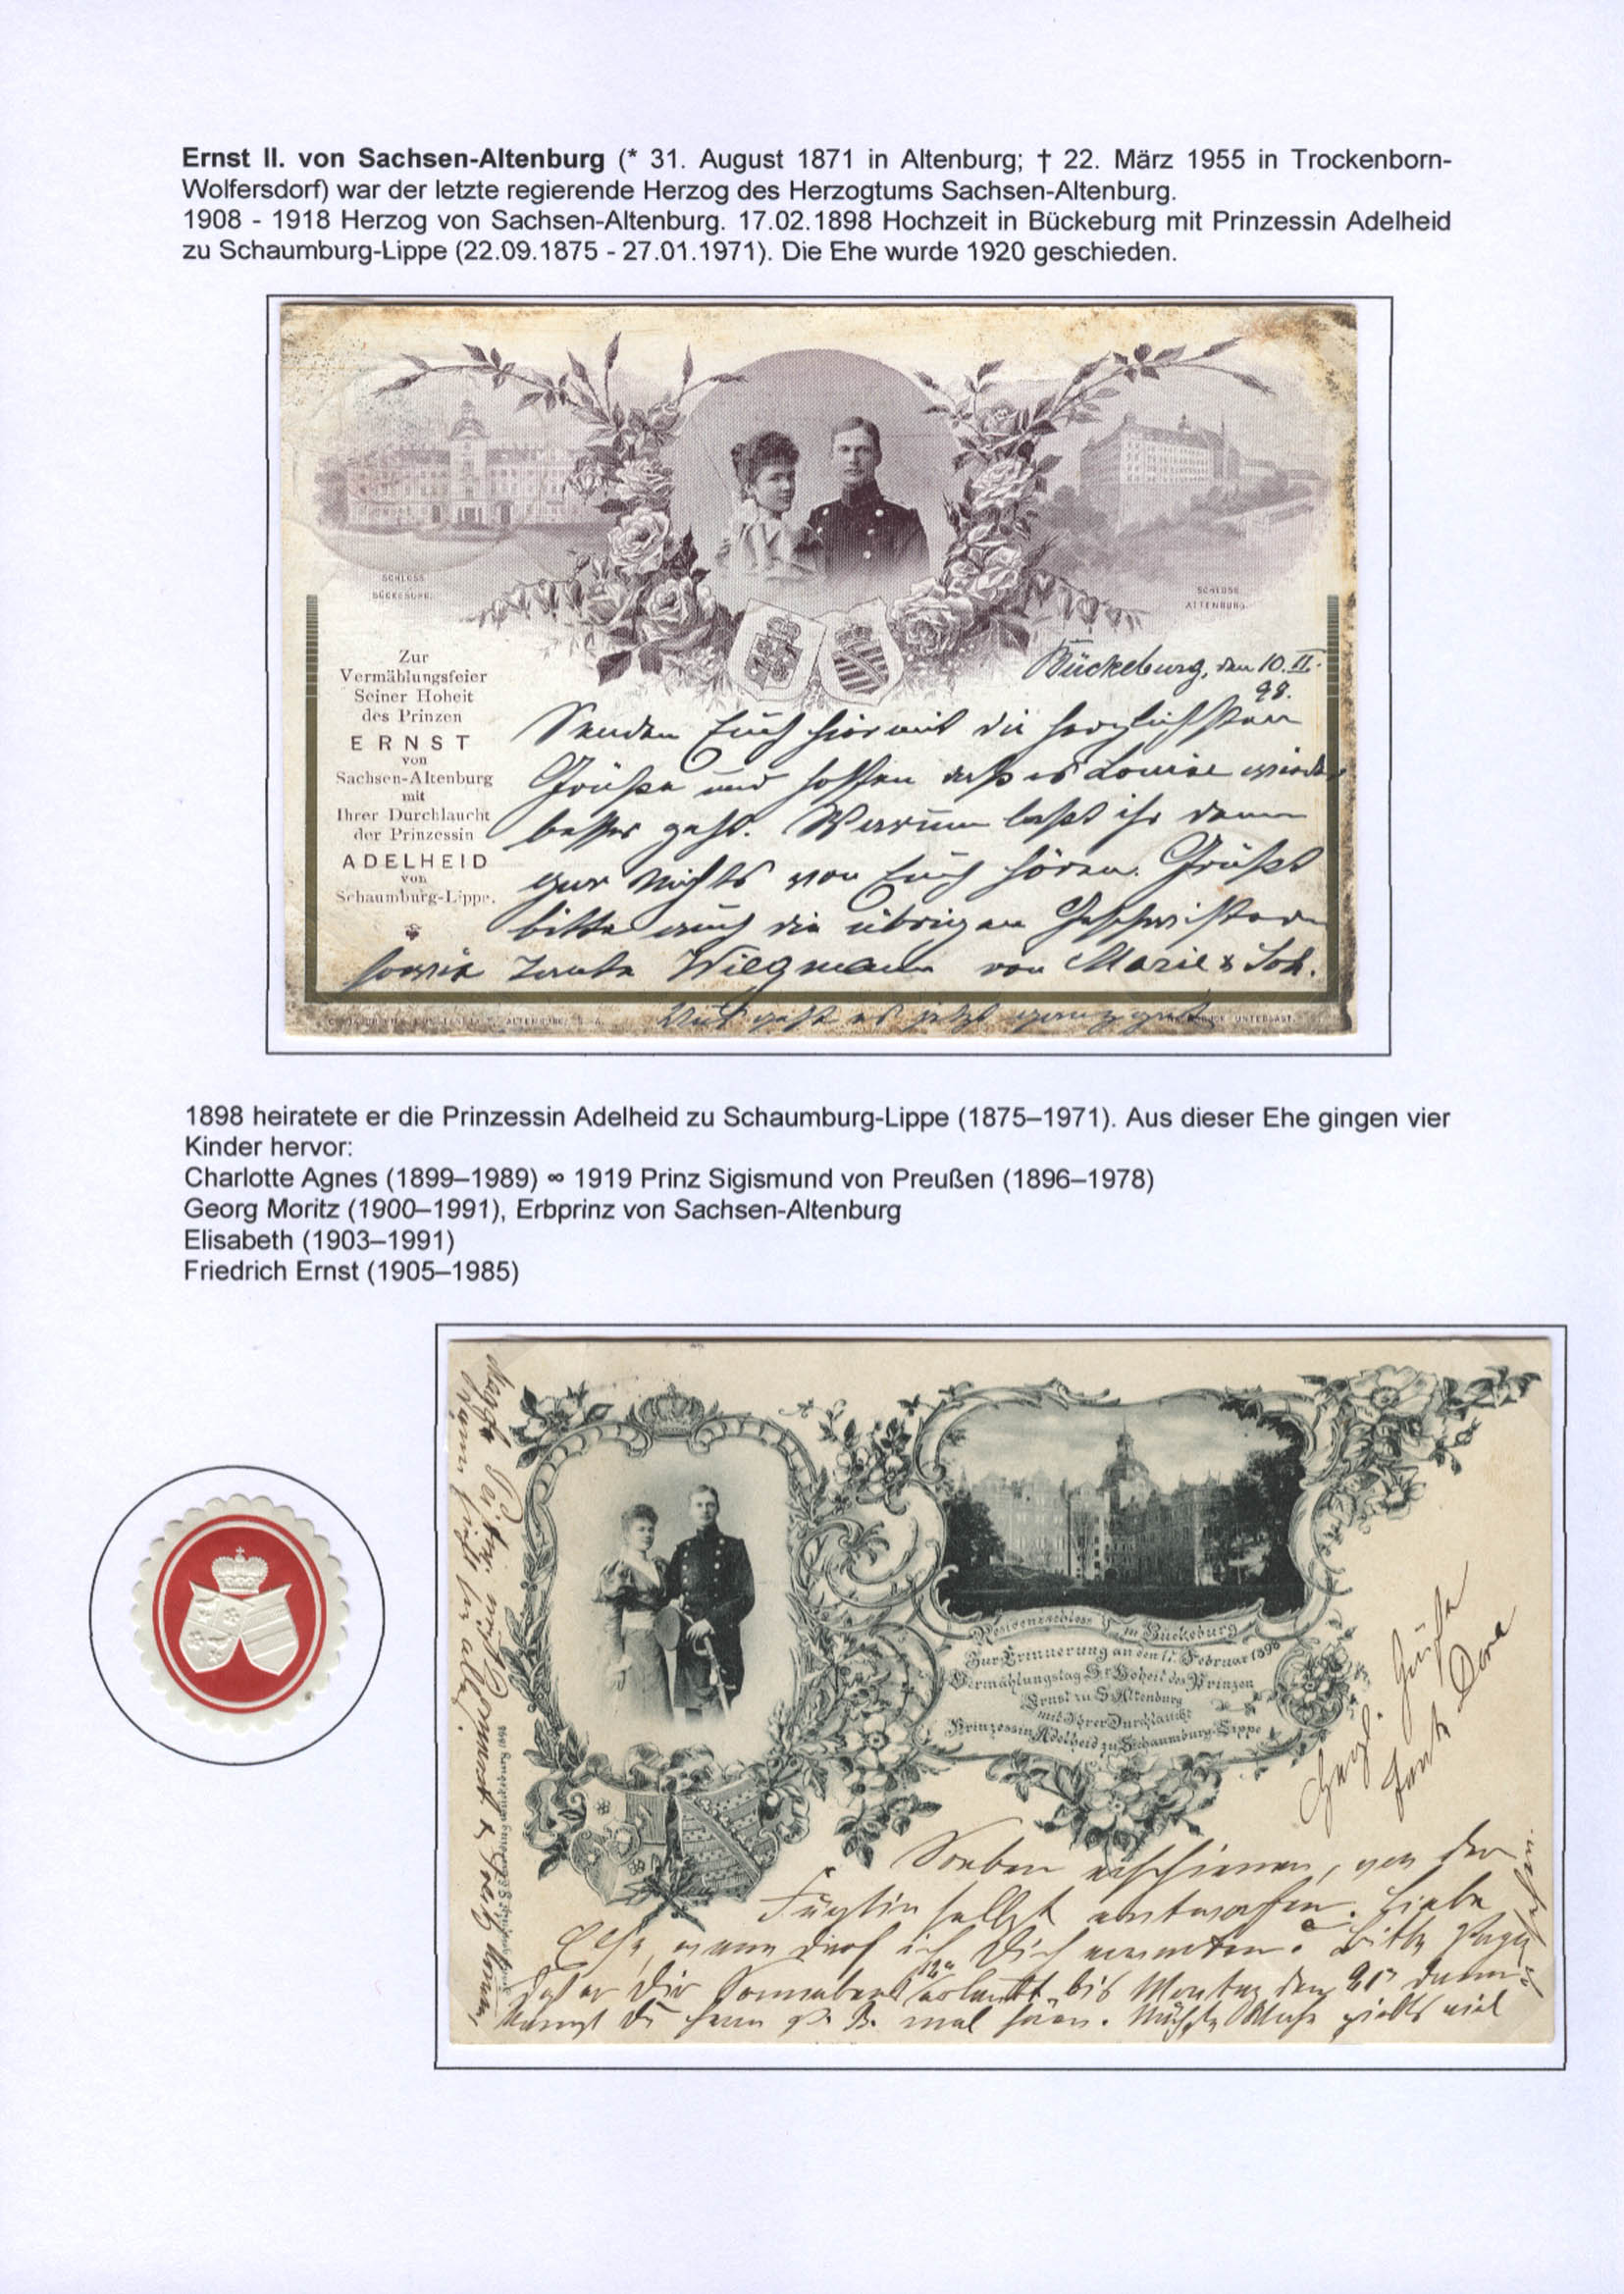 Ernst II. von Sachsen-Altenburg (* 31. August 1871 in Altenburg; † 22. März 1955 in Trockenborn-
Wolfersdorf) war der letzte regierende Herzog des Herzogtums Sachsen-Altenburg.
1908 - 1918 Herzog von Sachsen-Altenburg. 17.02.1898 Hochzeit in Bückeburg mit Prinzessin Adelheid
zu Schaumburg-Lippe (22.09.1875 - 27.01.1971). Die Ehe wurde 1920 geschieden.
SCHLOSS
BÜCKEBURG.
SCHLOSS
ALTENBURG.
Zur
Vermählungsfeier
Seiner Hoheit
des Prinzen
ERNST
von
Sachsen-Altenburg
mit
Ihrer Durchlaucht
der Prinzessin
ADELHEID
von
Schaumburg-Lippe.
Bückeburg, den 10. II.
98.
Senden Euch hiermit die herzlichsten
Grüße und hoffen daß es Louise wieder
besser geht. Warum laßt ihr denn
gar nichts von Euch hören. Grüßt
bitte auch die übrigen Geschwister
sowie Tante Wiegmann von Marie & Joh.
geht es jetzt ganz gut
ALTENBURG, S.-A.
1898 heiratete er die Prinzessin Adelheid zu Schaumburg-Lippe (1875–1971). Aus dieser Ehe gingen vier
Kinder hervor:
Charlotte Agnes (1899–1989) ∞ 1919 Prinz Sigismund von Preußen (1896–1978)
Georg Moritz (1900–1991), Erbprinz von Sachsen-Altenburg
Elisabeth (1903–1991)
Friedrich Ernst (1905–1985)
Residenzschloss in Bückeburg
Zur Erinnerung an den 17. Februar 1898
Vermählungstag Sr. Hoheit des Prinzen
Ernst zu S. Altenburg
mit Ihrer Durchlaucht
Prinzessin Adelheid zu Schaumburg-Lippe
Herzl. Grüße
Tante Dora
Soeben erschienen, von der
Fürstin selbst entworfen. Liebe
wann darf ich Dich erwarten? Bitte Papa
daß er Dir Sonnabend erlaubt bis Montag den dann
kannst Du mal viel